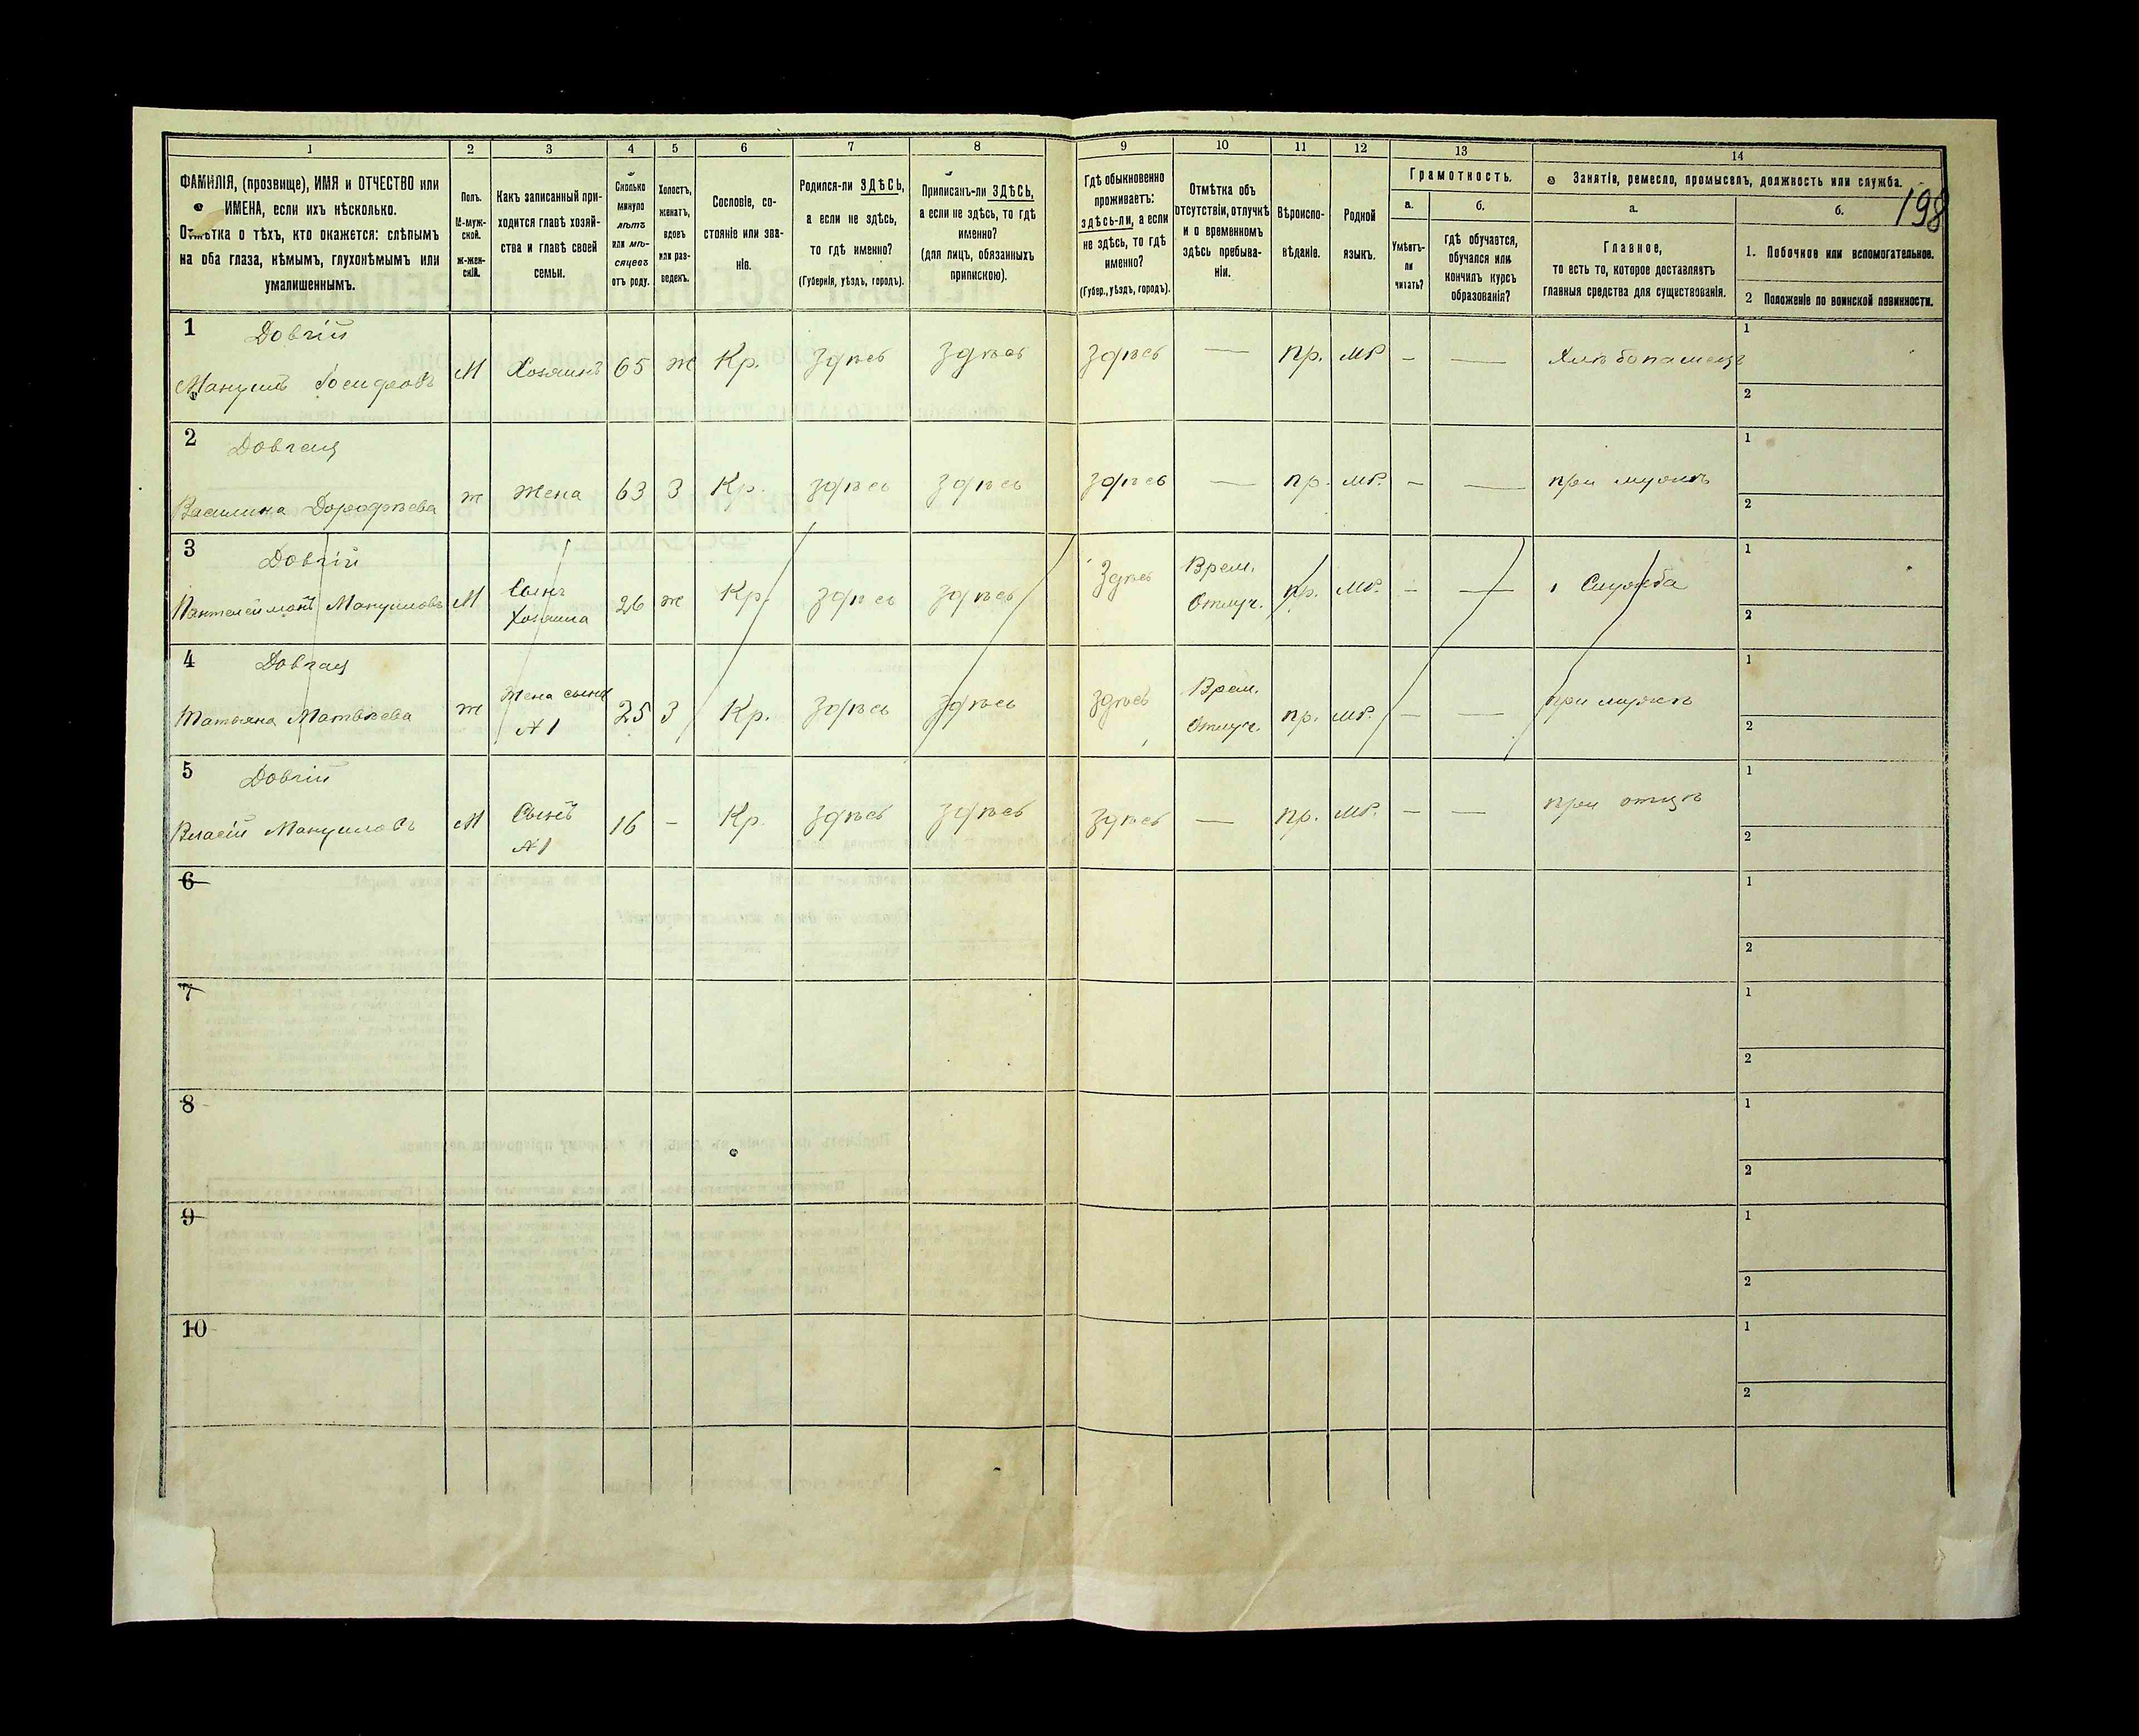 198
1 2 3 4 5 6 7 8 9 10 11 12 13 14
ФАМИЛІЯ, (прозвище), ИМЯ и ОТЧЕСТВО или
ИМЕНА, если ихъ нѣсколько.
Отмѣтка о тѣхъ, кто окажется: слѣпымъ
на оба глаза, нѣмымъ, глухонѣмымъ или
умалишеннымъ.
Полъ.
М-муж-
ской.
Ж-жен-
скій.
Какъ записанный при-
ходится главѣ хозяй-
ства и главѣ своей
семьи.
Сколько
минуло
лѣтъ
или мѣ-
сяцевъ
отъ роду.
Холостъ,
женатъ,
вдовъ
или раз-
веденъ.
Сословіе, со-
стояніе или зва-
ніе.
Родился-ли ЗДѢСЬ,
а если не здѣсь,
то гдѣ именно?
(Губернія, уѣздъ, городъ).
Приписанъ-ли ЗДѢСЬ,
а если не здѣсь, то гдѣ
именно?
(для лицъ, обязанныхъ
припискою).
Гдѣ обыкновенно
проживаетъ:
здѣсь-ли, а если
не здѣсь, то гдѣ
именно?
(Губер., уѣздъ, городъ).
Отмѣтка объ
отсутствіи, отлучкѣ
и о временномъ
здѣсь пребыва-
ніи.
Вѣроиспо-
вѣданіе.
Родной
языкъ.
Грамотность.
а.
Умѣетъ-
ли
читать?
б.
гдѣ обучается,
обучался или
кончилъ курсъ
образованія?
Занятіе, ремесло, промыселъ, должность или служба.
а.
Главное,
то есть то, которое доставляетъ
главныя средства для существованія.
б.
1. Побочное или вспомогательное.
2 Положеніе по воинской повинности.
1 Довгій 1
Мануилъ М Хозяинъ 65 ж Кр. здѣсь здѣсь здѣсь — пр. мр. — — Хлѣбопашецъ
2
2 Довгая 1
Василина Дорофѣева ж Жена 63 З Кр. здѣсь здѣсь здѣсь — пр. мр. — — при мужѣ
2
3 Довгій 1
Пантелеймонъ Мануиловъ М Сынъ хозяина 26 ж Кр. здѣсь здѣсь Здѣсь Врем. Отлуч. пр. мр. — — Служба
2
4 Довгая 1
Татьяна Матвѣева ж Жена сына №1 25 З Кр. здѣсь здѣсь здѣсь Врем. Отлуч. пр. мр. — — при мужѣ
2
5 Довгій 1
Власій Мануиловъ М Сынъ №1 16 — Кр. здѣсь здѣсь здѣсь — пр. мр. — — при отцѣ
2
6 1
2
7 1
2
8 1
2
9 1
2
10 1
2